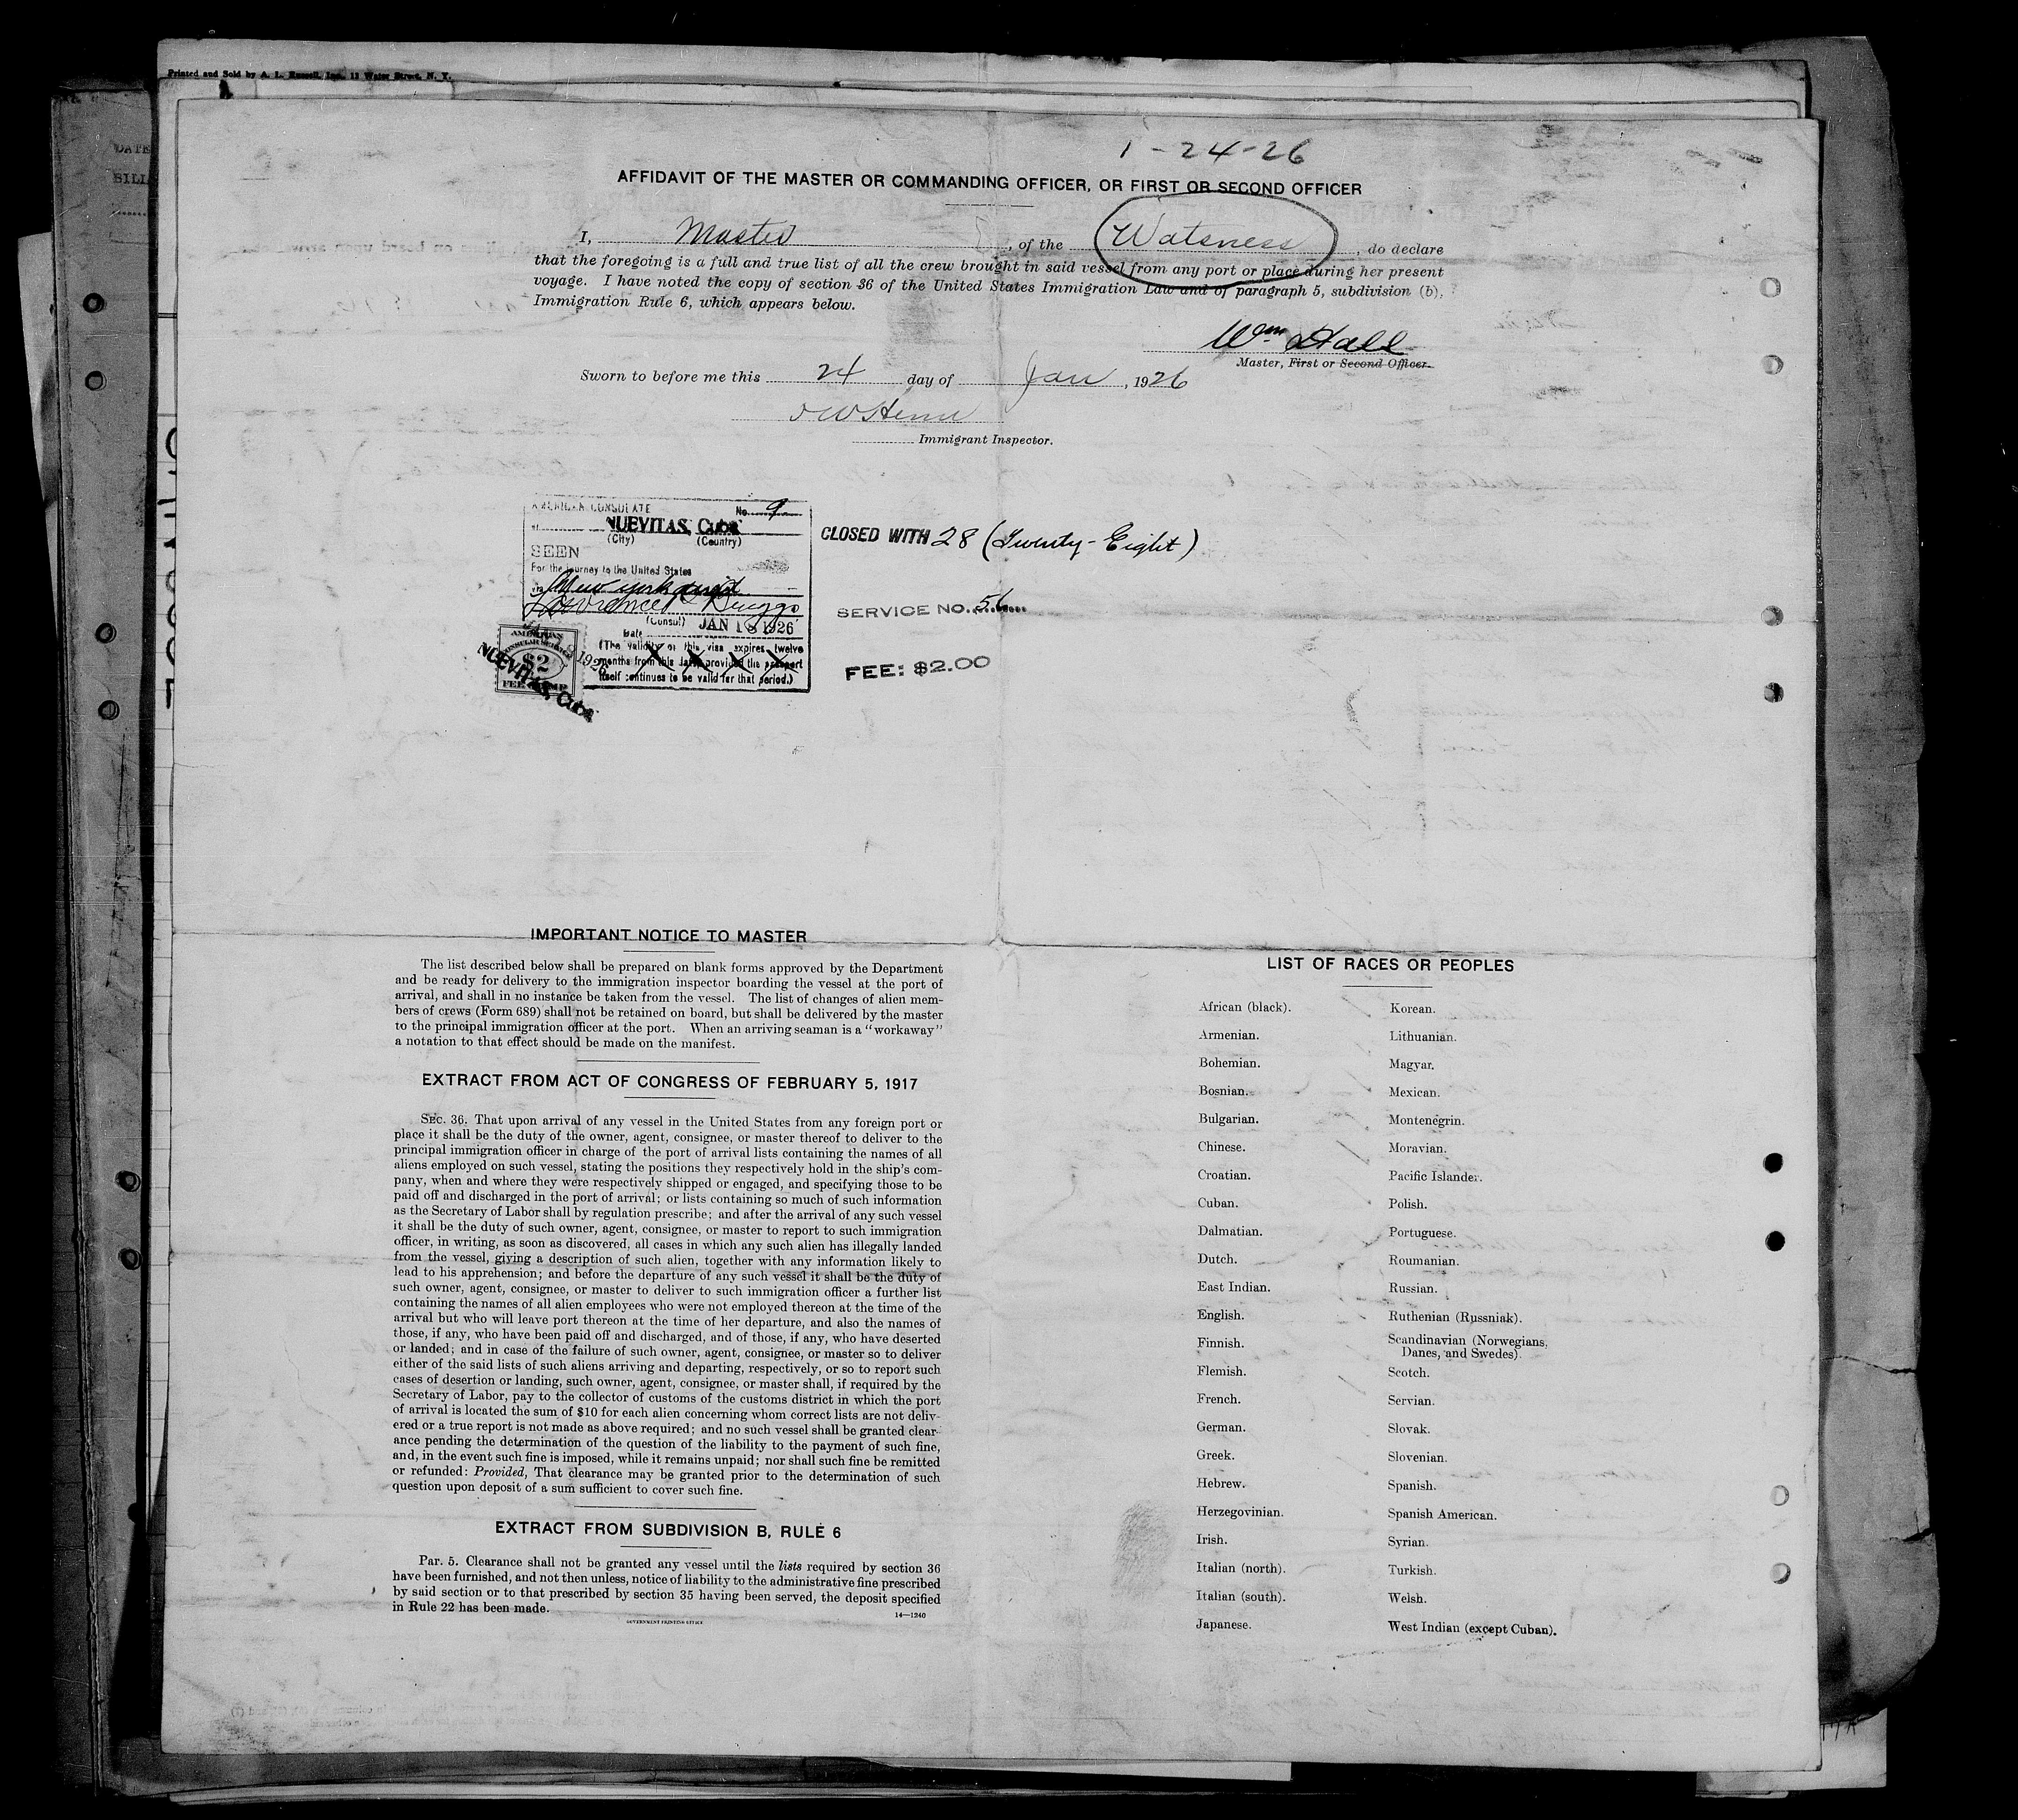 Printed and Sold by A. L. Russell, Inc. 11 Water Street, N. Y.
DATE
BILL
1-24-26
AFFIDAVIT OF THE MASTER OR COMMANDING OFFICER, OR FIRST OR SECOND OFFICER
I, Master, of the Watsness, do declare
that the foregoing is a full and true list of all the crew brought in said vessel from any port or place during her present
voyage. I have noted the copy of section 36 of the United States Immigration Law and of paragraph 5, subdivision (b),
Immigration Rule 6, which appears below.
Wm Hall
Master, First or Second Officer.
Sworn to before me this 24 day of Jan, 1926
Immigrant Inspector.
AMERICAN CONSULATE No. 9
at NUEVITAS, Cuba
(City) (Country)
SEEN
For the journey to the United States
via New York
(Consul)
Date JAN 18 1926
(The validity of this visa expires twelve
months from this date provided the passport
itself continues to be valid for that period.)
AMERICAN
CONSULAR SERVICE
$2
FEE STAMP
1926
NUEVITAS, Cuba
CLOSED WITH 28 (Twenty-Eight)
SERVICE NO. 51
FEE: $2.00
IMPORTANT NOTICE TO MASTER
The list described below shall be prepared on blank forms approved by the Department
and be ready for delivery to the immigration inspector boarding the vessel at the port of
arrival, and shall in no instance be taken from the vessel. The list of changes of alien mem-
bers of crews (Form 689) shall not be retained on board, but shall be delivered by the master
to the principal immigration officer at the port. When an arriving seaman is a "workaway"
a notation to that effect should be made on the manifest.
EXTRACT FROM ACT OF CONGRESS OF FEBRUARY 5, 1917
SEC. 36. That upon arrival of any vessel in the United States from any foreign port or
place it shall be the duty of the owner, agent, consignee, or master thereof to deliver to the
principal immigration officer in charge of the port of arrival lists containing the names of all
aliens employed on such vessel, stating the positions they respectively hold in the ship's com-
pany, when and where they were respectively shipped or engaged, and specifying those to be
paid off and discharged in the port of arrival; or lists containing so much of such information
as the Secretary of Labor shall by regulation prescribe; and after the arrival of any such vessel
it shall be the duty of such owner, agent, consignee, or master to report to such immigration
officer, in writing, as soon as discovered, all cases in which any such alien has illegally landed
from the vessel, giving a description of such alien, together with any information likely to
lead to his apprehension; and before the departure of any such vessel it shall be the duty of
such owner, agent, consignee, or master to deliver to such immigration officer a further list
containing the names of all alien employees who were not employed thereon at the time of the
arrival but who will leave port thereon at the time of her departure, and also the names of
those, if any, who have been paid off and discharged, and of those, if any, who have deserted
or landed; and in case of the failure of such owner, agent, consignee, or master so to deliver
either of the said lists of such aliens arriving and departing, respectively, or so to report such
cases of desertion or landing, such owner, agent, consignee, or master shall, if required by the
Secretary of Labor, pay to the collector of customs of the customs district in which the port
of arrival is located the sum of $10 for each alien concerning whom correct lists are not deliv-
ered or a true report is not made as above required; and no such vessel shall be granted clear-
ance pending the determination of the question of the liability to the payment of such fine,
and, in the event such fine is imposed, while it remains unpaid; nor shall such fine be remitted
or refunded: Provided, That clearance may be granted prior to the determination of such
question upon deposit of a sum sufficient to cover such fine.
EXTRACT FROM SUBDIVISION B, RULE 6
PAR. 5. Clearance shall not be granted any vessel until the lists required by section 36
have been furnished, and not then unless, notice of liability to the administrative fine prescribed
by said section or to that prescribed by section 35 having been served, the deposit specified
in Rule 22 has been made.
GOVERNMENT PRINTING OFFICE 14—1240
LIST OF RACES OR PEOPLES
African (black). Korean.
Armenian. Lithuanian.
Bohemian. Magyar.
Bosnian. Mexican.
Bulgarian. Montenegrin.
Chinese. Moravian.
Croatian. Pacific Islander.
Cuban. Polish.
Dalmatian. Portuguese.
Dutch. Roumanian.
East Indian. Russian.
English. Ruthenian (Russniak).
Finnish. Scandinavian (Norwegians,
Danes, and Swedes).
Flemish. Scotch.
French. Servian.
German. Slovak.
Greek. Slovenian.
Hebrew. Spanish.
Herzegovinian. Spanish American.
Irish. Syrian.
Italian (north). Turkish.
Italian (south). Welsh.
Japanese. West Indian (except Cuban).